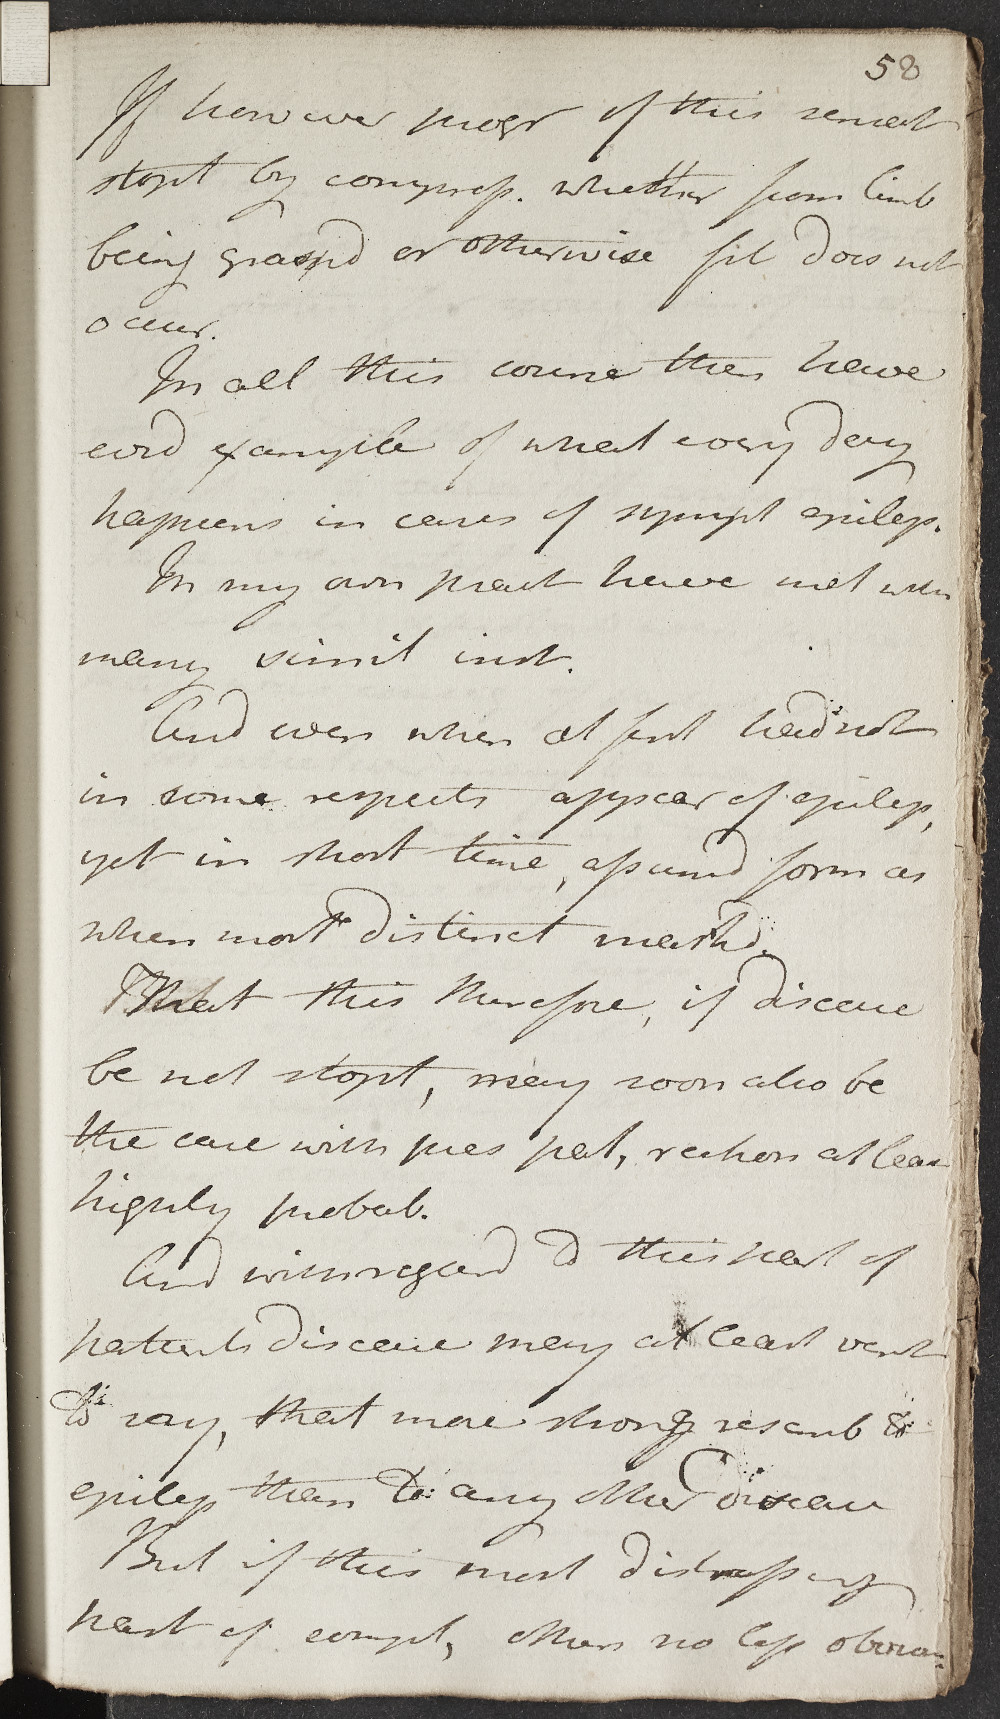 58
If however progr of this semeat
stopt by compress. whether from limb
being graspd or otherwise fit does not
occur.
In all this course then have
evid example of what every day
happens in cases of sympt epileps.
In my own pract have met with
many simil inst.
And even when at first had not
in some respects appear of epileps,
yet in short time, assumd form as
when most distinct markd.
That this therefore, if disease
be not stopt, may soon also be
the case with pres pat, reckon at least
highly probab.
And with regard to this part of
patients disease may at least vent
to say, that more strong resemb to
epileps than to any other disease
But if this most distressing
part of compt, others no less obvious